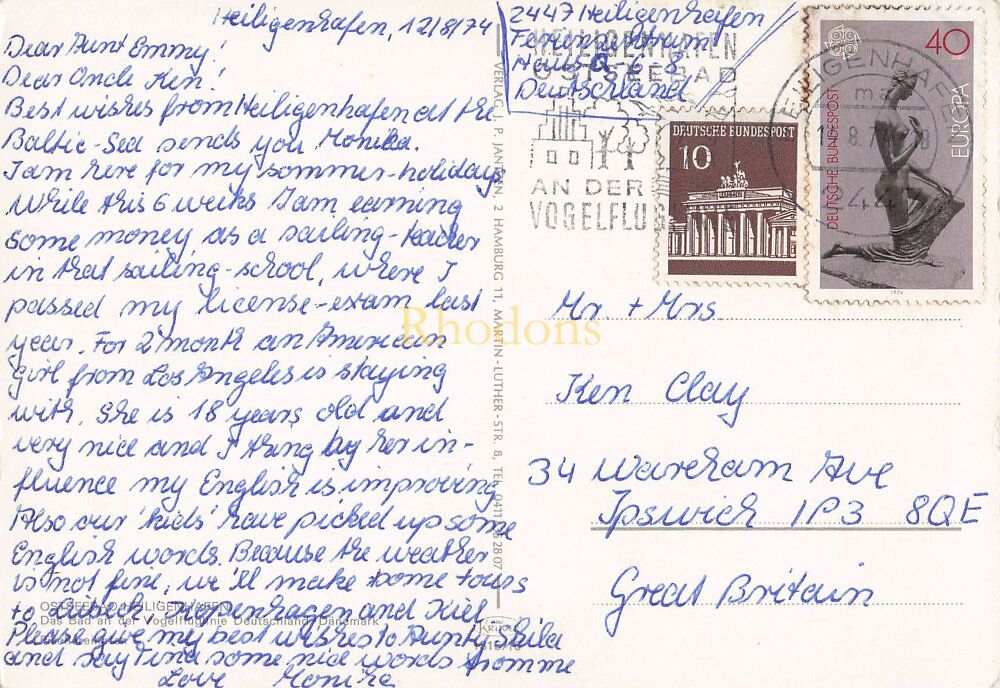 Heiligenhafen, 12/8/74
Dear Aunt Emmy!
Dear Oncle Ken!
Best wishes from Heiligenhafen at the
Baltic-Sea sends you Monika.
I am here for my sommer-holidays
While this 6 weeks I am earning
some money as a sailing-teacher
in that sailing-school, where I
passed my license-exam last
year. For 2 month an American
girl from Los Angeles is staying
with. She is 18 years old and
very nice and I thang by her in-
fluence my English is improving
Also our 'kids' have picked up some
English words. Because the weather
is not fine, we'll make some tours
to Lübeck, Kopenhagen and Kiel
Please give my best wishes to Aunty Shila
and say Tina some nice words fromme
Love Monika
OSTSEEBAD HEILIGENHAFEN
Das Bad an der Vogelfluglinie Deutschland/Dänemark
VERLAG J. P. JANZEN, 2 HAMBURG 11, MARTIN-LUTHER-STR. 8, TEL. 0411
28 07
2447 Heiligenhafen
Ferienzentrum
Deutschland
HEILIGENHAFEN
OSTSEEBAD
AN DER
VOGELFLUG
DEUTSCHE BUNDESPOST
10
40
DEUTSCHE BUNDESPOST
EUROPA
1974
HEILIGENHAFEN
Rhodons
Mr. + Mrs.
Ken Clay
34 Wareham Ave
Ipswich IP3 8QE
Great Britain